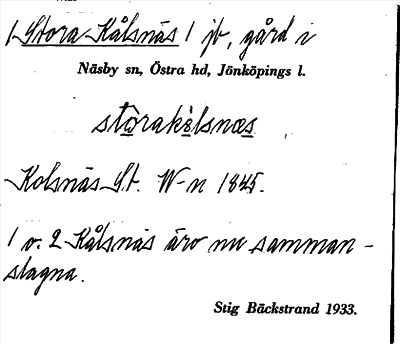 1 Stora Kålsnäs 1 jb, gård i
Näsby sn, Östra hd, Jönköpings l.
stòrakɵ̀lsnæs
Kolsnäs St. W-n 1845.
1 o. 2 Kålsnäs äro nu samman-
slagna.
Stig Bäckstrand 1933.